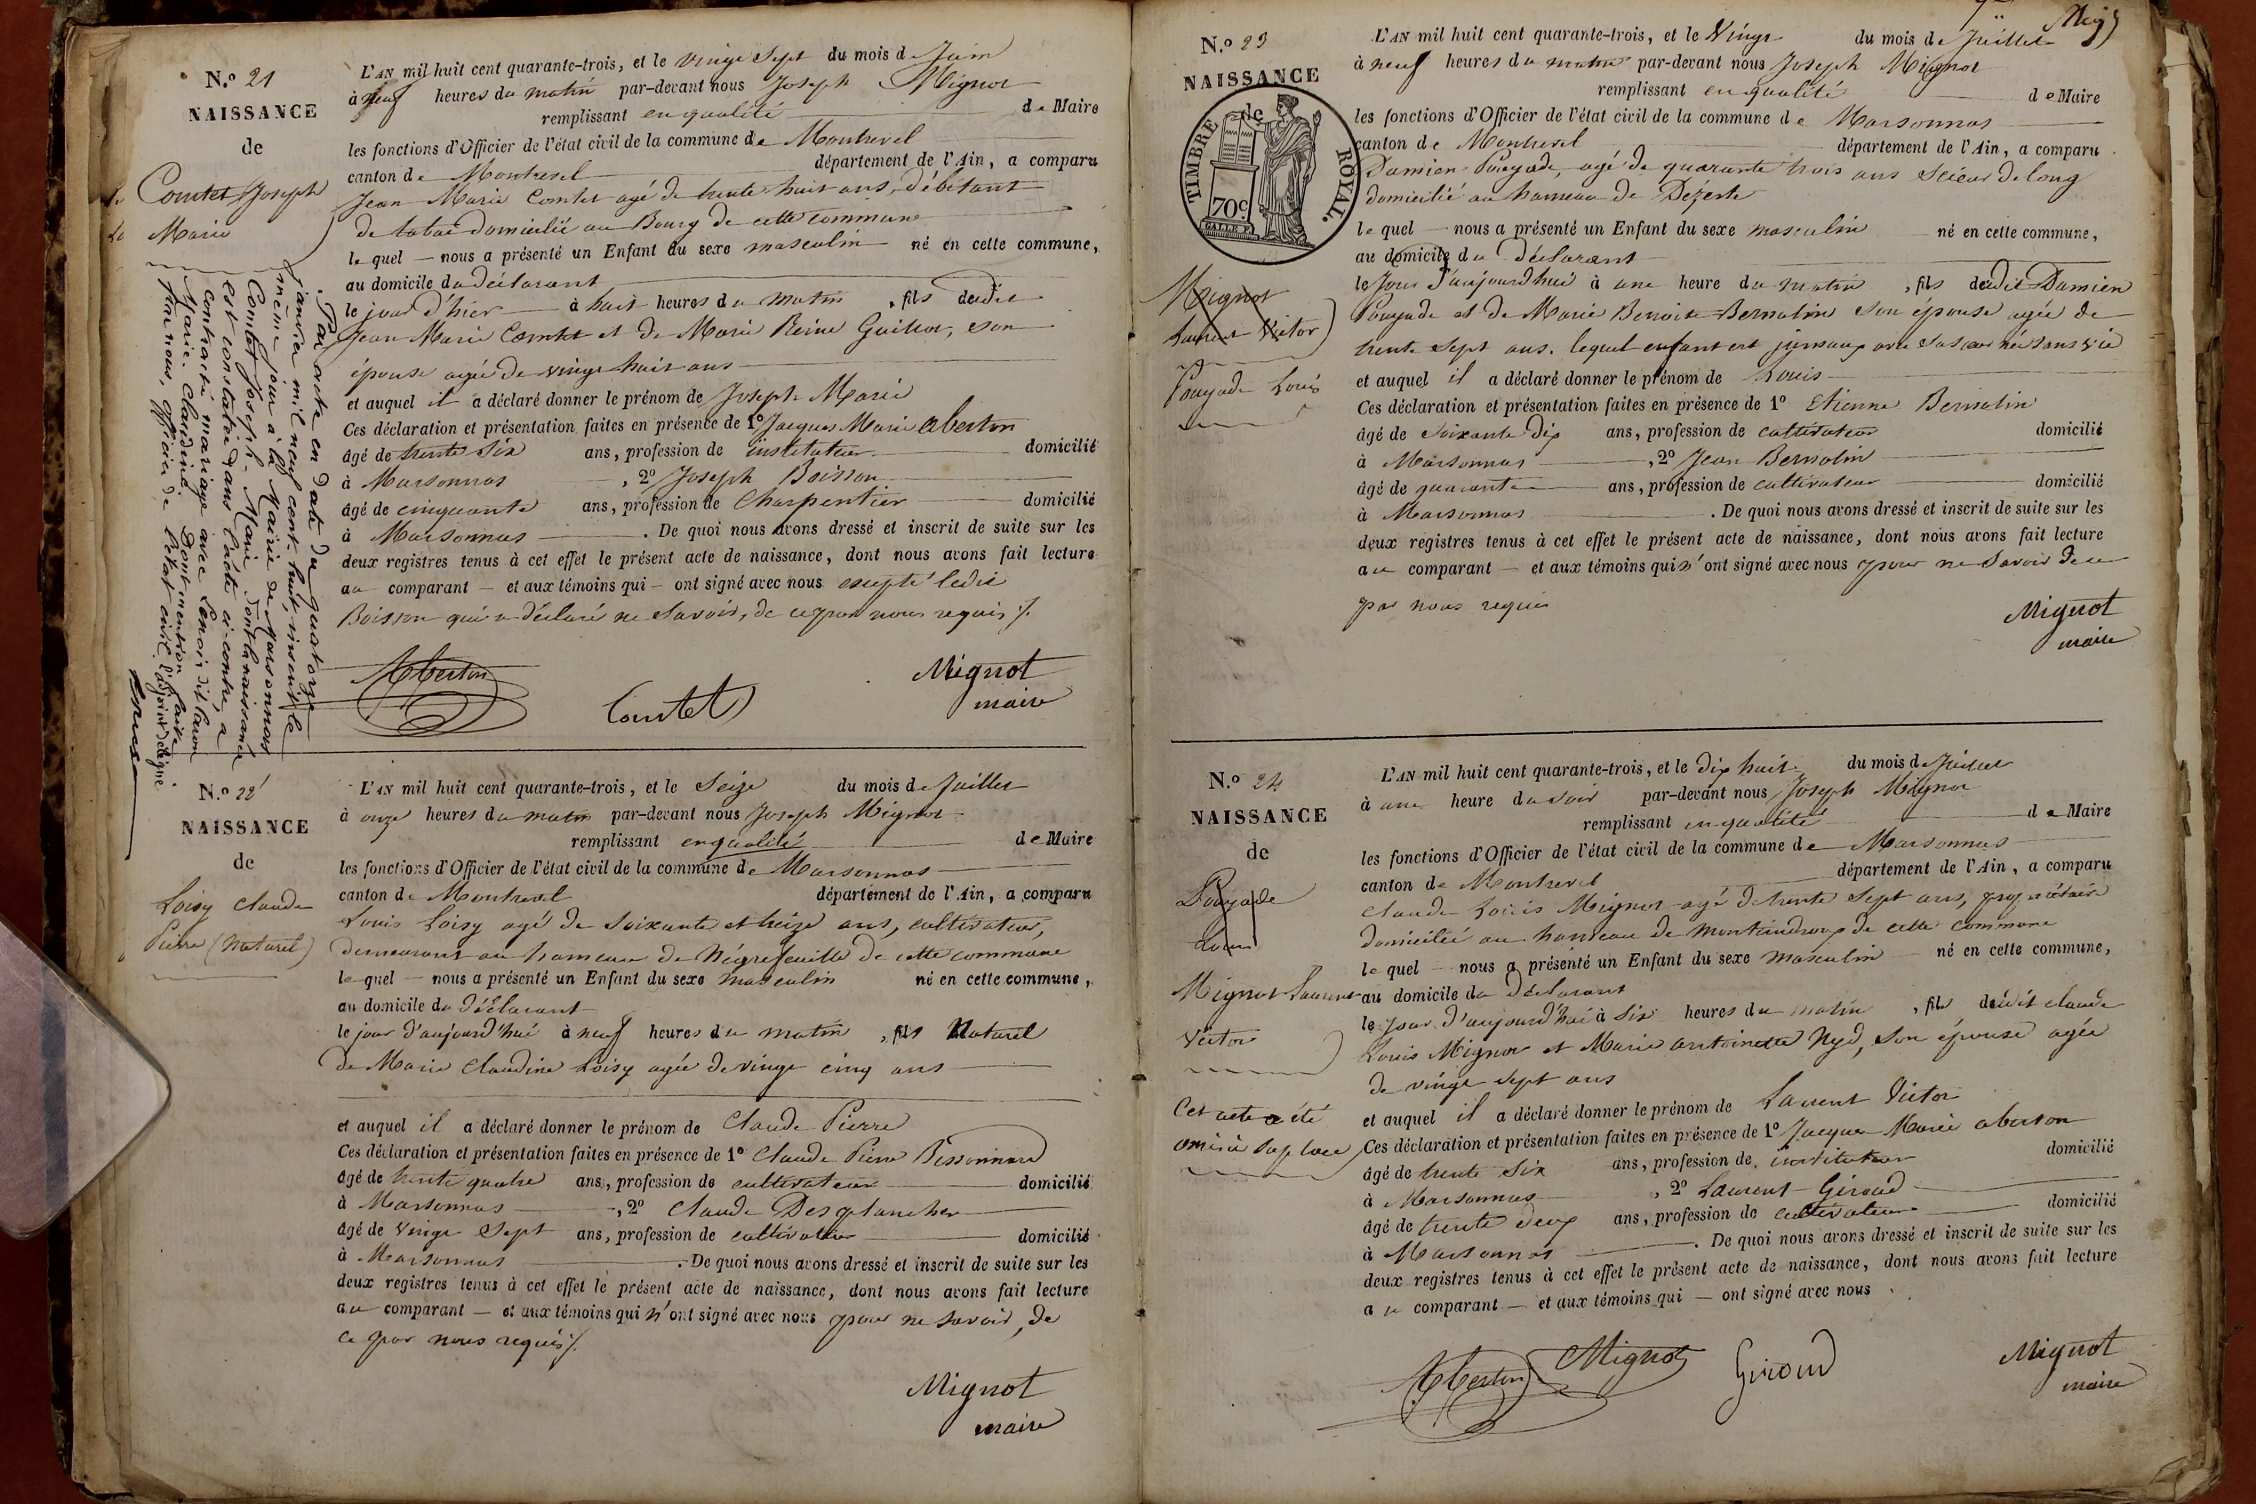 N.º 21
NAISSANCE
de
Comtet Joseph
Marie
L'AN mil huit cent quarante-trois, et le vingt sept du mois de Juin
à neuf heures du matin par-devant nous Joseph Mignot
remplissant en qualité de Maire
les fonctions d'Officier de l'état civil de la commune de Montrevel
canton de Montrevel département de l'Ain, a comparu
Jean Marie Comtet agé de trente huit ans, débitant
de tabac domicilié au Bourg de cette commune
lequel — nous a présenté un Enfant du sexe masculin né en cette commune,
au domicile du déclarant
le jour d'hier à huit heures du matin, fils dudit
Jean Marie Comtet et de Marie Reine Guillot, son
épouse agée de vingt huit ans
et auquel il a déclaré donner le prénom de Joseph Marie
Ces déclaration et présentation faites en présence de 1º Jacques Marie Aberton
âgé de trente six ans, profession de instituteur domicilié
à Marsonnas, 2º Joseph Boisson
âgé de cinquante ans, profession de Charpentier domicilié
à Marsonnas. De quoi nous avons dressé et inscrit de suite sur les
deux registres tenus à cet effet le présent acte de naissance, dont nous avons fait lecture
au comparant — et aux témoins qui — ont signé avec nous excepté ledit
Boisson qui a déclaré ne savoir, de ce par nous requis ./.
Aberton
Comtet
Mignot
maire
Par acte en date du quatorze
janvier mil neuf cent huit, inscrit le
même jour à la Mairie de Marsonnas
Comtet Joseph Marie dont la naissance
est constatée dans l'acte ci-contre, a
contracté mariage avec Lenoir dit Caron
Marie Claudine Dont mention faite
par nous, officier de l'état civil, l'adjoint délégué
N.º 22
NAISSANCE
de
Loisy Claude
Pierre (Naturel)
L'AN mil huit cent quarante-trois, et le Seize du mois de Juillet
à onze heures du matin par-devant nous Joseph Mignot
remplissant en qualité de Maire
les fonctions d'Officier de l'état civil de la commune de Marsonnas
canton de Montrevel département de l'Ain, a comparu
Louis Loisy agé de soixante et treize ans, cultivateur,
demeurant au hameau de Négrefeuille de cette commune
lequel — nous a présenté un Enfant du sexe masculin né en cette commune,
au domicile du Déclarant
le jour d'aujourd'hui à neuf heures du matin, fils Naturel
de Marie Claudine Loisy agée de vingt cinq ans
et auquel il a déclaré donner le prénom de Claude Pierre
Ces déclaration et présentation faites en présence de 1º Claude Pierre Bissonnard
âgé de trente quatre ans, profession de cultivateur domicilié
à Marsonnas, 2º Claude Desplanches
âgé de vingt sept ans, profession de cultivateur domicilié
à Marsonnas. De quoi nous avons dressé et inscrit de suite sur les
deux registres tenus à cet effet le présent acte de naissance, dont nous avons fait lecture
au comparant — et aux témoins qui n'ont signé avec nous pour ne savoir, de
ce par nous requis ./.
Mignot
maire
N.º 23
NAISSANCE
de
TIMBRE ROYAL.
70c
Mignot
Laurent Victor
Pouyade Louis
L'AN mil huit cent quarante-trois, et le Vingt du mois de Juillet
à neuf heures du matin par-devant nous Joseph Mignot
remplissant en qualité de Maire
les fonctions d'Officier de l'état civil de la commune de Marsonnas
canton de Montrevel département de l'Ain, a comparu
Damien Pouyade, agé de quarante trois ans Scieur de long
domicilié au hameau de Dezerte
lequel — nous a présenté un Enfant du sexe masculin né en cette commune,
au domicile du Déclarant
le Jour d'aujourd'hui à une heure du matin, fils dudit Damien
Pouyade et de Marie Benoite Bernolin son épouse agée de
trente sept ans. lequel enfant est jumeau avec sa sœur née sans vie
et auquel il a déclaré donner le prénom de Louis
Ces déclaration et présentation faites en présence de 1º Etienne Bernolin
âgé de soixante dix ans, profession de cultivateur domicilié
à Marsonnas, 2º Jean Bernolin
âgé de quarante ans, profession de cultivateur domicilié
à Marsonnas. De quoi nous avons dressé et inscrit de suite sur les
deux registres tenus à cet effet le présent acte de naissance, dont nous avons fait lecture
au comparant — et aux témoins qui n'ont signé avec nous pour ne savoir de ce
par nous requis
Mignot
maire
N.º 24
NAISSANCE
de
Pouyade
Louis
Mignot Laurent
Victor
Cet acte a été
omis à sa place
L'AN mil huit cent quarante-trois, et le dix huit du mois de Juillet
à une heure du soir par-devant nous Joseph Mignot
remplissant en qualité de Maire
les fonctions d'Officier de l'état civil de la commune de Marsonnas
canton de Montrevel département de l'Ain, a comparu
Claude Louis Mignot agé de trente sept ans, propriétaire
domicilié au hameau de Montaindroux de cette commune
lequel — nous a présenté un Enfant du sexe masculin né en cette commune,
au domicile du déclarant
le jour d'aujourd'hui à six heures du matin, fils dudit Claude
Louis Mignot et Marie Antoinette Nyd, son épouse agée
de vingt sept ans
et auquel il a déclaré donner le prénom de Laurent Victor
Ces déclaration et présentation faites en présence de 1º Jacques Marie Aberton
âgé de trente six ans, profession de instituteur domicilié
à Marsonnas, 2º Laurent Giroud
âgé de trente deux ans, profession de cultivateur domicilié
à Marsonnas. De quoi nous avons dressé et inscrit de suite sur les
deux registres tenus à cet effet le présent acte de naissance, dont nous avons fait lecture
au comparant — et aux témoins qui — ont signé avec nous.
Aberton
Mignot
Giroud
Mignot
maire